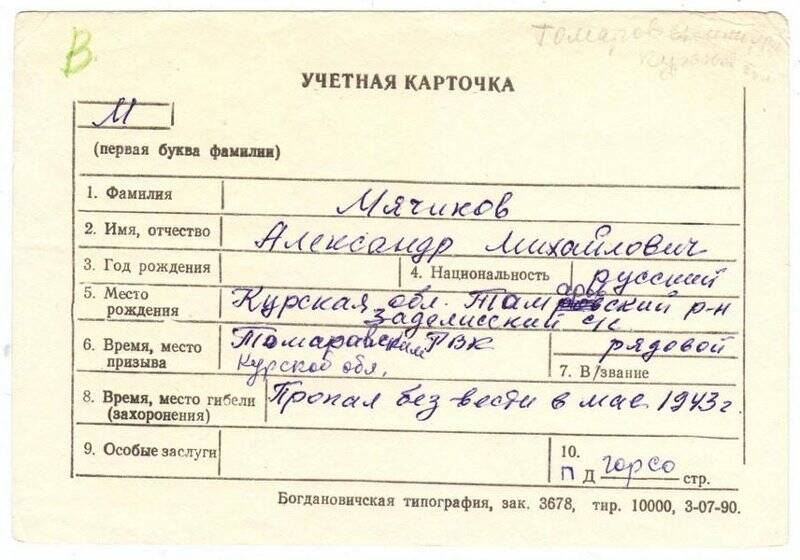 В.
Томаров
Курской обл
УЧЕТНАЯ КАРТОЧКА
М
(первая буква фамилии)
1. Фамилия Мячиков
2. Имя, отчество Александр Михайлович
3. Год рождения 4. Национальность русский
5. Место рождения Курская обл. Томаровский р-н
с/с
6. Время, место призыва Томаровским РВК
Курской обл.
рядовой
7. В/звание
8. Время, место гибели (захоронения) Пропал без вести в мае 1943 г
9. Особые заслуги
10.
П Д горсо стр.
Богдановичская типография, зак. 3678, тир. 10000, 3-07-90.